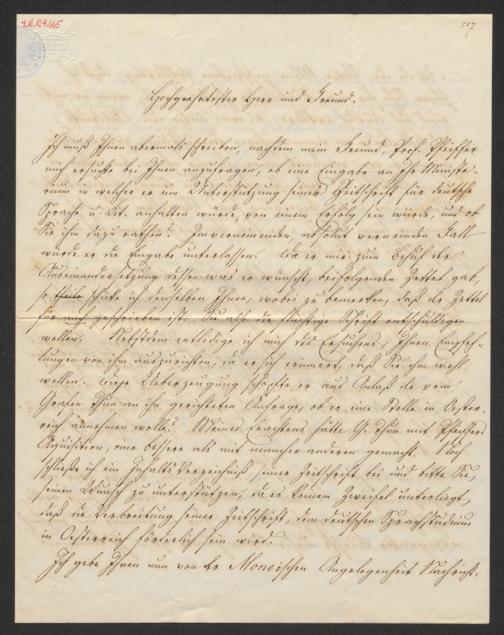 I.N. 124.665
557
Hochgeehrtester Herr und Freund.
Ich muß Ihnen abermals schreiben, nachdem mein Freund, Prof. Pfeiffer
mich ersuchte bei Ihnen anzufragen, ob eine Eingabe an Ihr Ministe-
rium in welcher er um Unterstützung seiner Zeitschrift für deutsche
Sprache u. Lit. anhalten würde, von einem Erfolg sein würde, und ob
Sie ihm dazu rathen? Im verneinenden, absolut verneinenden Fall
würde er die Eingabe unterlassen. Da er mir zum Behuf der
Auseinandersetzung dessen was er wünscht, beifolgenden Zettel gab,
so schicke ich denselben Ihnen, wobei zu bemerken, daß der Zettel
für mich geschrieben ist, Sie also die flüchtige Schrift entschuldigen
wollen. Nebstdem entledige ich mich des Ersuchens, Ihnen Empfeh-
lungen von ihm auszurichten, da er sich erinnert, daß Sie ihm wohl
wollen. Diese Ueberzeugung schöpfte er aus Anlaß der vom
Grafen Thun an ihn gerichteten Anfrage, ob er eine Stelle in Oester-
reich annehmen wolle? Meines Erachtens hätte Gr. Thun mit Pfeiffers
Acquisition, eine bessere als mit mancher anderen gemacht. Noch
schließe ich ein Inhaltsverzeichniß seiner Zeitschrift bei und bitte Sie,
seinen Wunsch zu unterstützen, da es keinem Zweifel unterliegt,
daß die Verbreitung seiner Zeitschrift, dem deutschen Sprachstudium
in Oestreich förderlich sein wird.
Ich gebe Ihnen nun von der Moneischen Angelegenheit Nachricht.